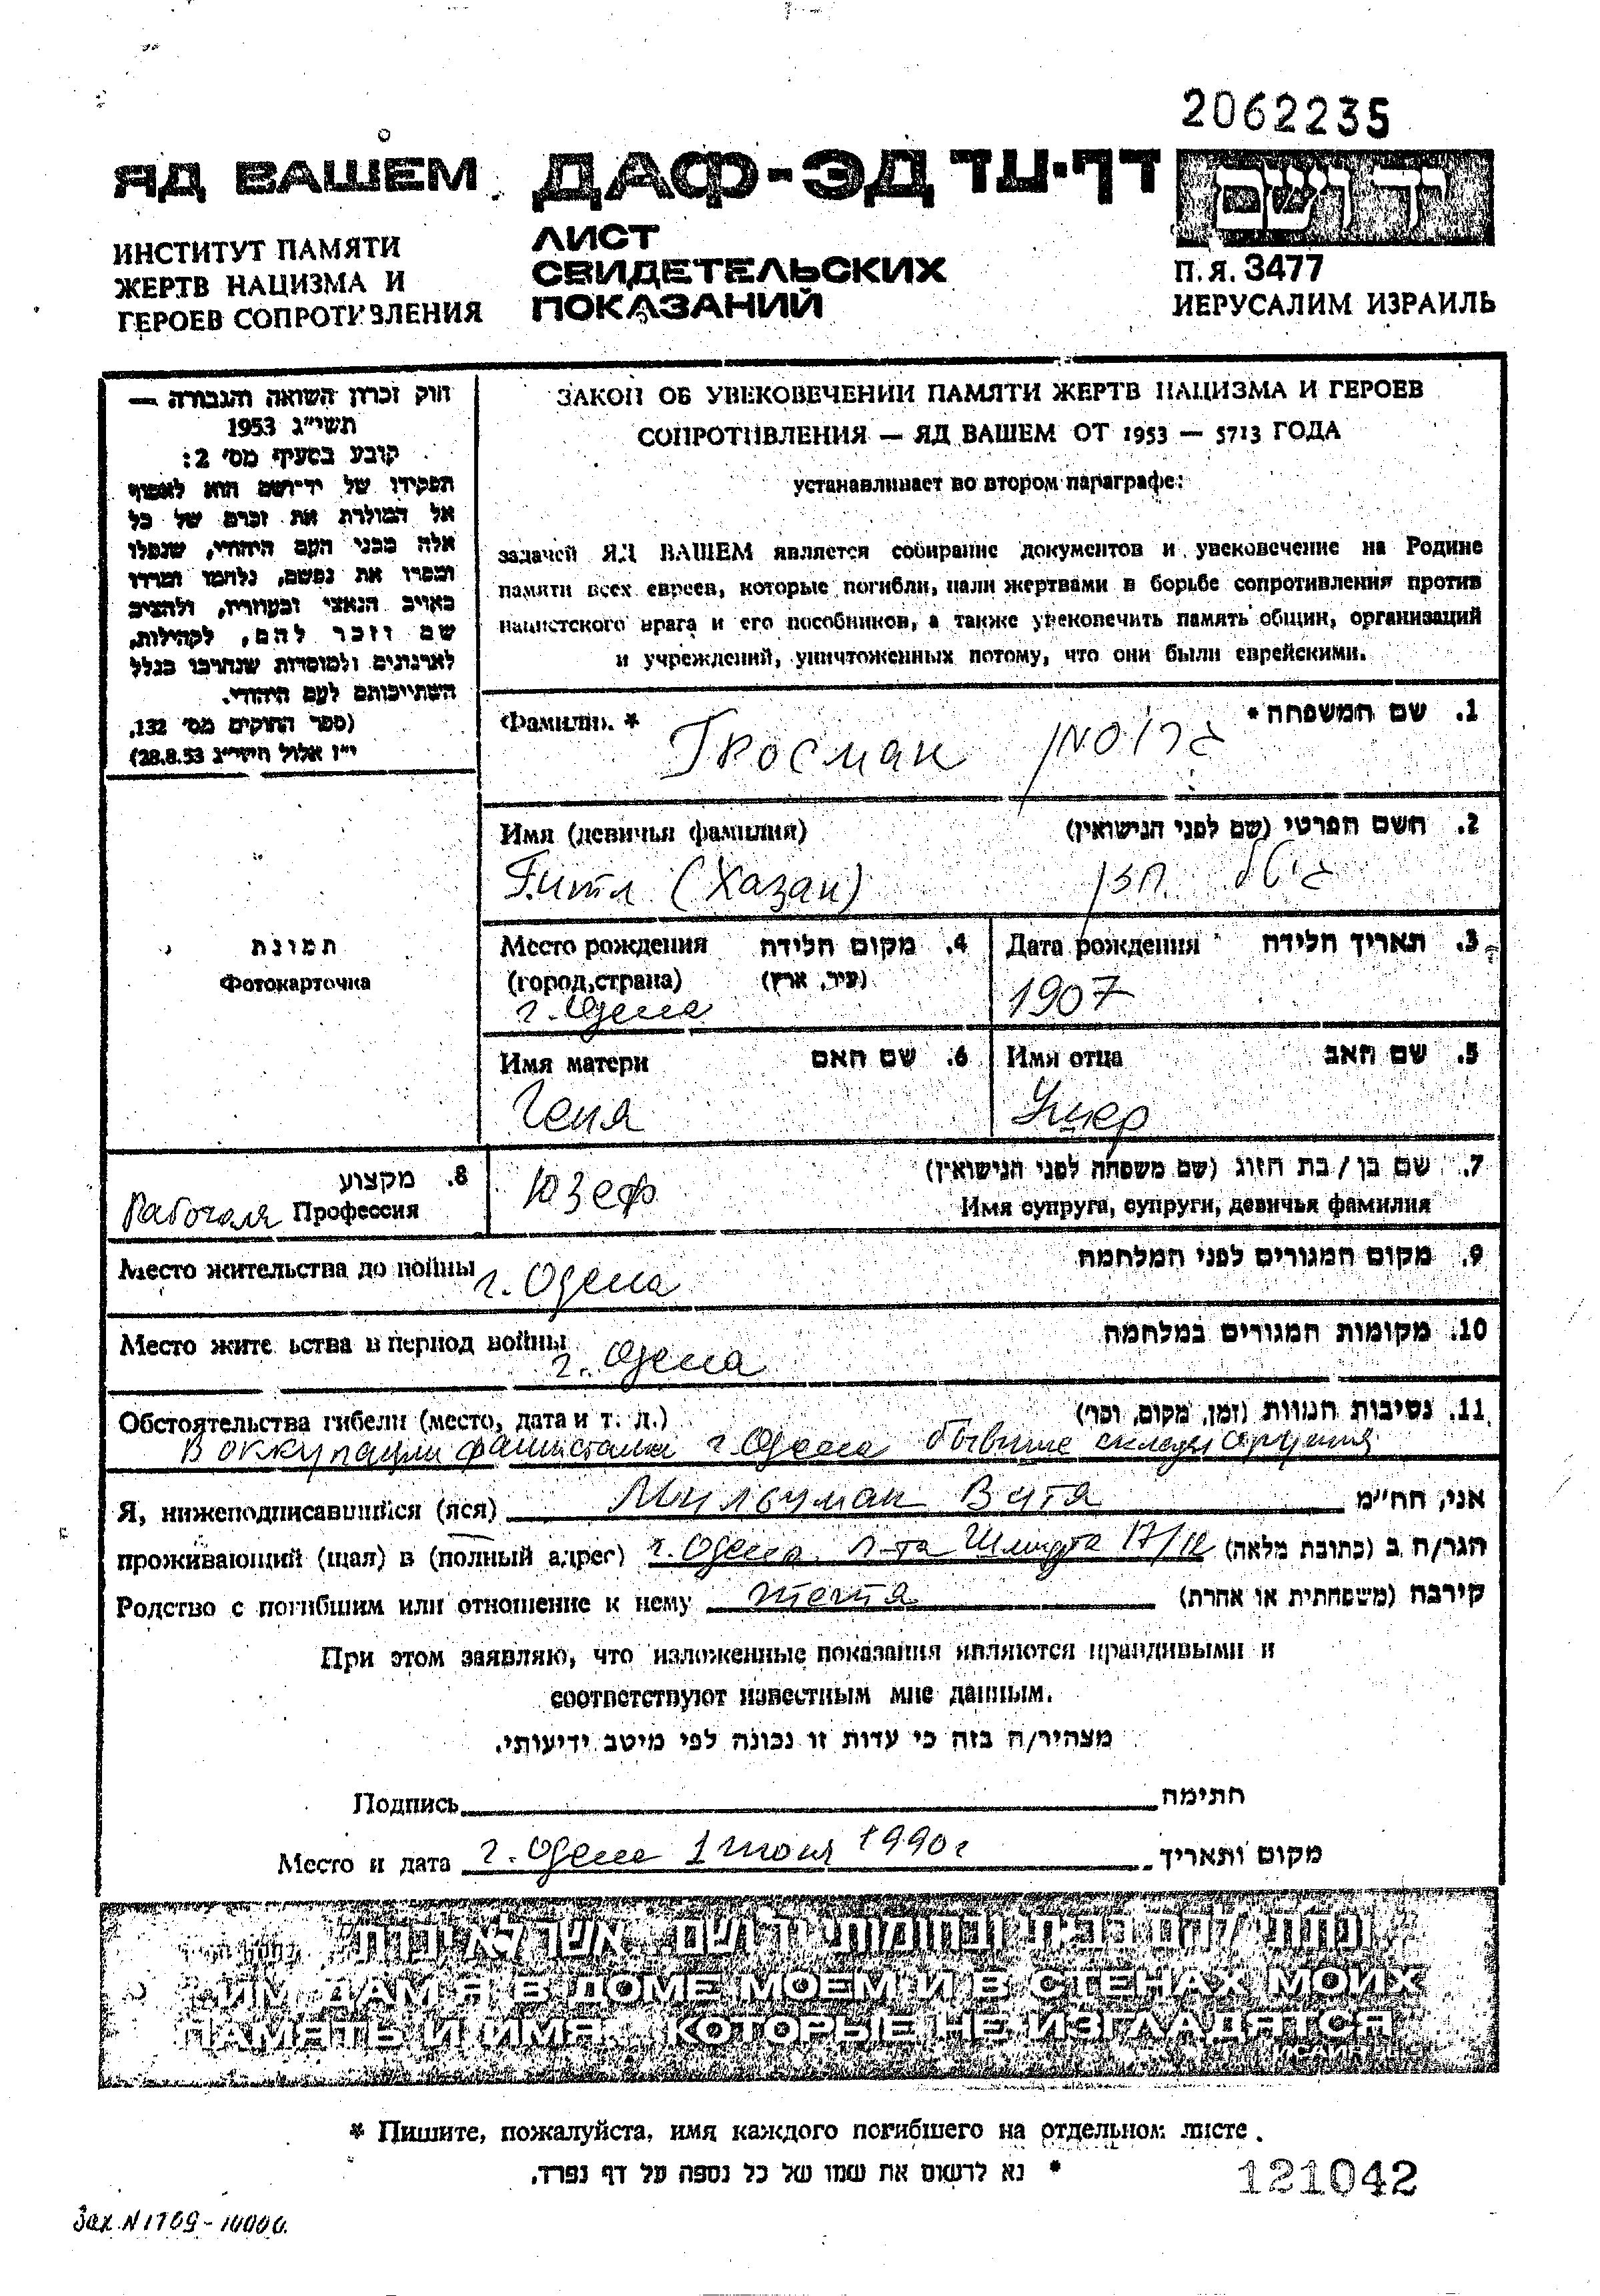 2062235
ЯД ВАШЕМ
ДАФ-ЭД דף-עד
יד ושם
ИНСТИТУТ ПАМЯТИ
ЖЕРТВ НАЦИЗМА И
ГЕРОЕВ СОПРОТИВЛЕНИЯ
ЛИСТ
СВИДЕТЕЛЬСКИХ
ПОКАЗАНИЙ
П.Я. 3477
ИЕРУСАЛИМ ИЗРАИЛЬ
חוק זכרון השואה והגבורה —
תשי"ג 1953
קובע בסעיף מס' 2:
תפקידו של יד-ושם הוא לאסוף
אל המולדת את זכרם של כל
אלה מבני העם היהודי, שנפלו
ומסרו את נפשם, נלחמו ומרדו
באויב הנאצי ובעוזריו, ולהציב
שם וזכר להם, לקהילות,
לארגונים ולמוסדות שנחרבו בגלל
השתייכותם לעם היהודי.
(ספר החוקים מס' 132,
י"ז אלול תשי"ג 28.8.53)
ЗАКОН ОБ УВЕКОВЕЧЕНИИ ПАМЯТИ ЖЕРТВ НАЦИЗМА И ГЕРОЕВ
СОПРОТИВЛЕНИЯ — ЯД ВАШЕМ ОТ 1953 — 5713 ГОДА
устанавливает во втором параграфе:
задачей ЯД ВАШЕМ является собирание документов и увековечение на Родине
памяти всех евреев, которые погибли, пали жертвами в борьбе сопротивления против
нацистского врага и его пособников, а также увековечить память общин, организаций
и учреждений, уничтоженных потому, что они были еврейскими.
Фамилия * 1. שם המשפחה *
Гросман גרוסמן
Имя (девичья фамилия) 2. השם הפרטי (שם לפני הנישואין)
Гитл (Хазан) גיטל חזן
תמונה
Фотокарточка
Место рождения 4. מקום הלידה
(город, страна) (עיר, ארץ)
г. Одесса
Дата рождения 3. תאריך הלידה
1907
Имя матери 6. שם האם
Геня
Имя отца 5. שם האב
Ушер
8. מקצוע
Рабочая Профессия
7. שם בן / בת הזוג (שם משפחה לפני הנישואין)
Юзеф
Имя супруга, супруги, девичья фамилия
Место жительства до войны г. Одесса 9. מקום המגורים לפני המלחמה
Место жите ьства в период войны г. Одесса 10. מקומות המגורים במלחמה
Обстоятельства гибели (место, дата и т. д.) 11. נסיבות המוות (זמן, מקום, וכו')
В оккупации фашистами г. Одесса бывшие склады орудия
Я, нижеподписавшийся (яся) Мильчман Вита אני, הח"מ
проживающий (щая) в (полный адрес) г. Одесса, л-та Шмидта 17/12 הגר/ה ב (כתובת מלאה)
Родство с погибшим или отношение к нему тетя קירבה (משפחתית או אחרת)
При этом заявляю, что изложенные показания являются правдивыми и
соответствуют известным мне данным.
מצהיר/ה בזה כי עדות זו נכונה לפי מיטב ידיעותי.
Подпись חתימה
Место и дата г. Одесса 1 июня 1990 г מקום ותאריך
ונתתי להם בביתי ובחומותי יד ושם... אשר לא יכרת
ИМ ДАМ Я В ДОМЕ МОЕМ И В СТЕНАХ МОИХ
ПАМЯТЬ И ИМЯ... КОТОРЫЕ НЕ ИЗГЛАДЯТСЯ
ИСАИЯ
* Пишите, пожалуйста, имя каждого погибшего на отдельном листе.
* נא לרשום את שמו של כל נספה על דף נפרד.
121042
Зак. N 1709 - 10000.